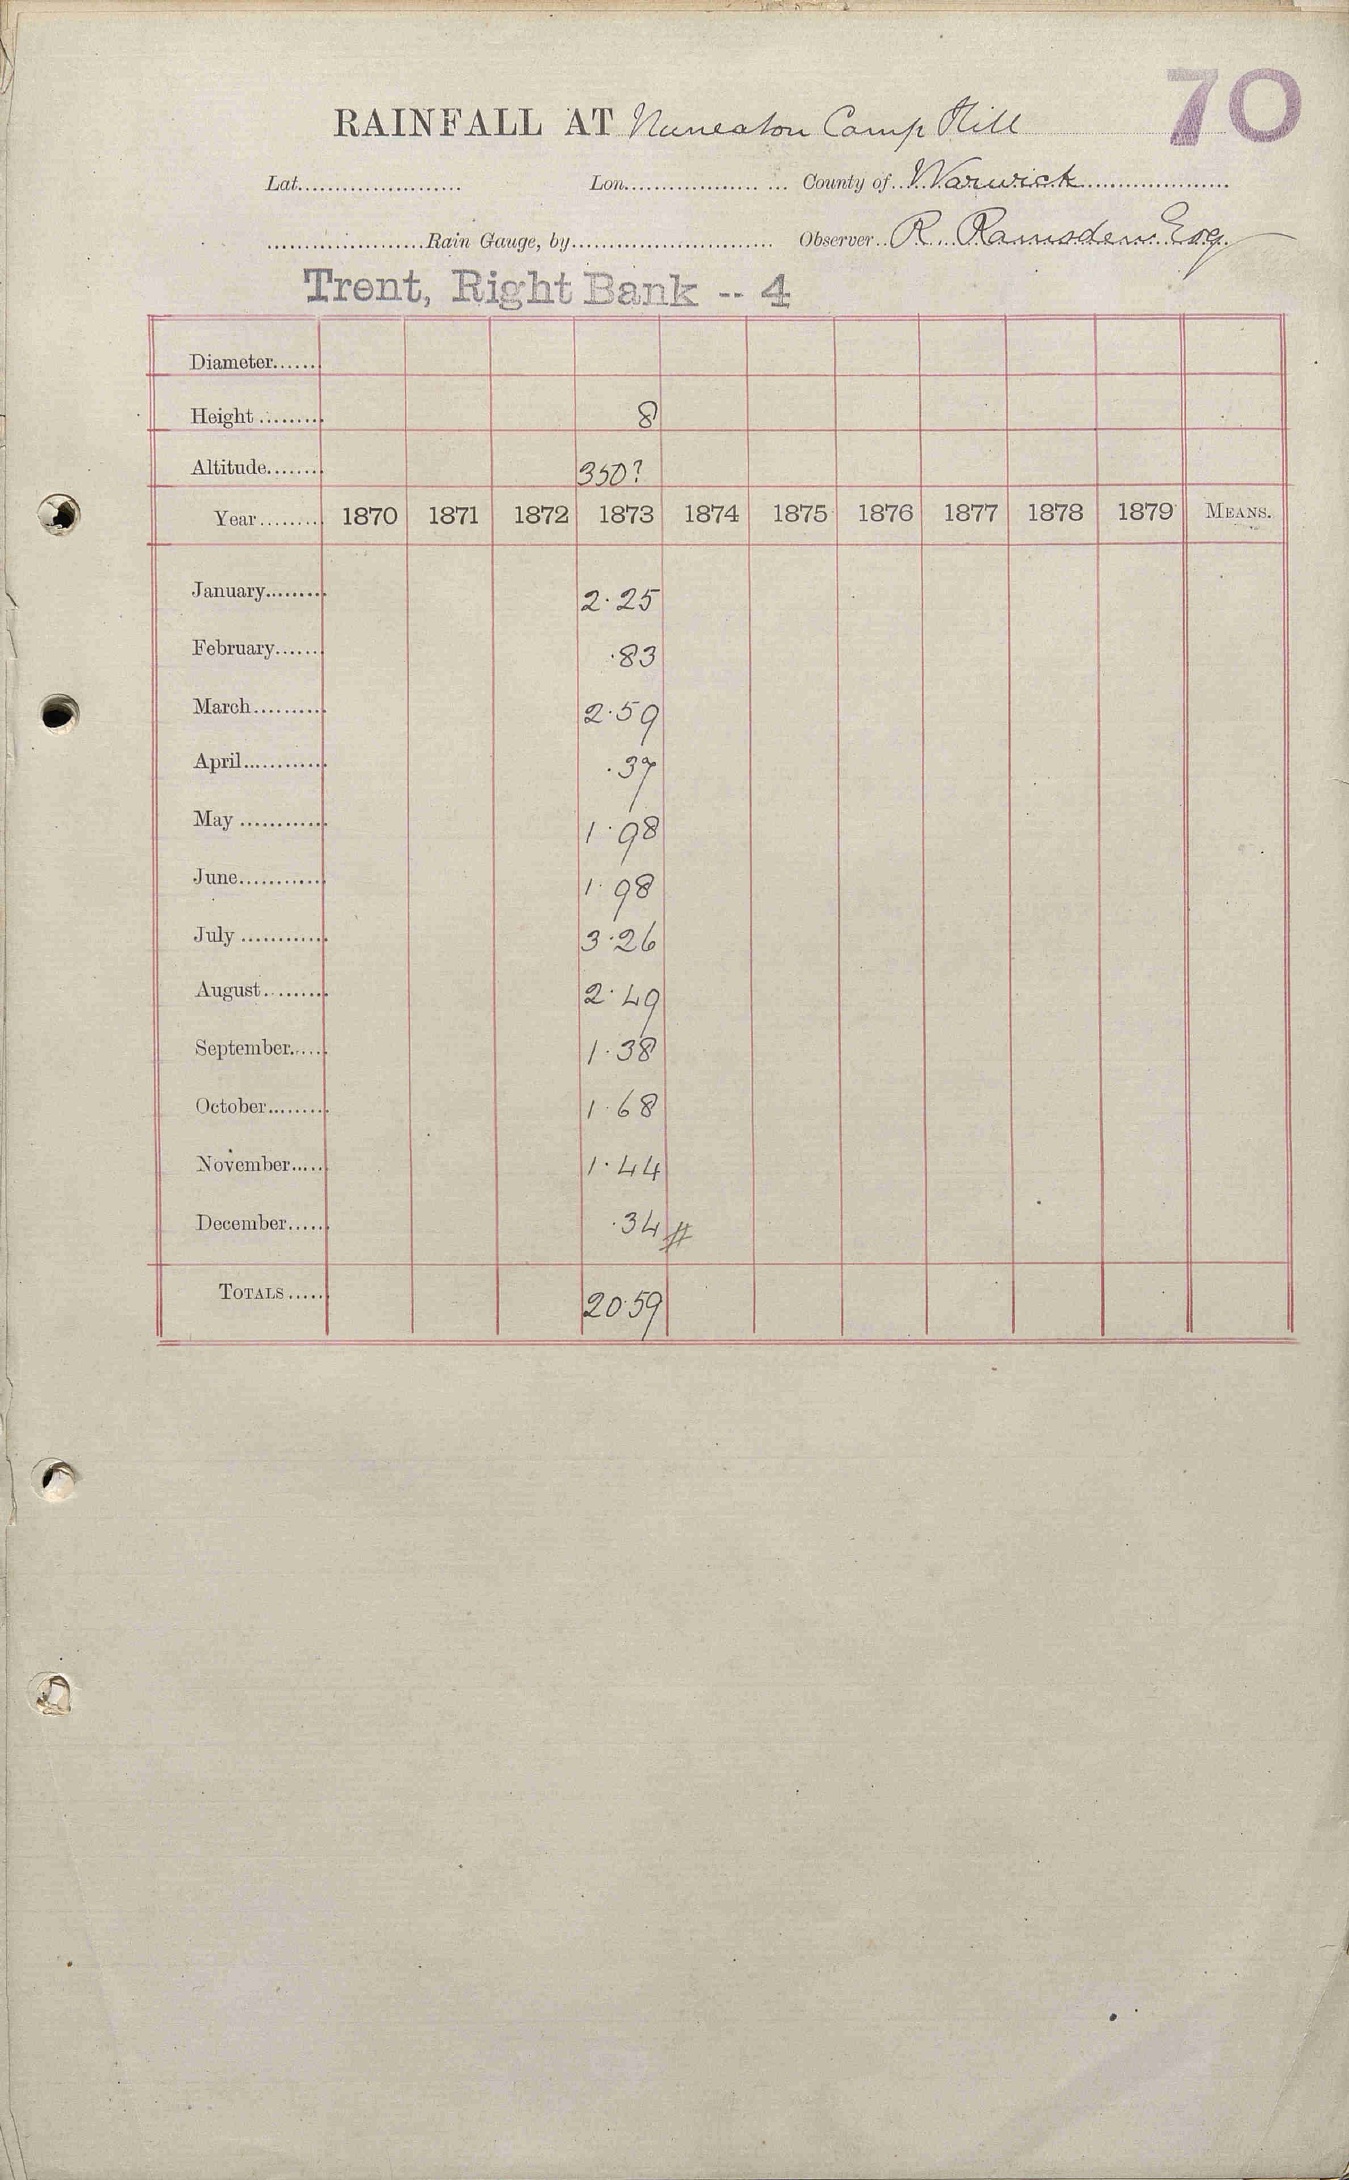 70
RAINFALL AT Nuneaton Camp Hill
Lat....................... Lon................... ... County of...Warwick.....................
......................Rain Gauge, by............................ Observer..R. Ramsden Esq.
Trent, Right Bank -- 4
Diameter......
Height......... 8
Altitude........ 350?
Year......... 1870 1871 1872 1873 1874 1875 1876 1877 1878 1879 MEANS.
January......... 2.25
February....... .83
March.......... 2.59
April............ .37
May ............ 1.98
June............ 1.98
July ............ 3.26
August......... 2.49
September...... 1.38
October......... 1.68
November...... 1.44
December...... .34 #
TOTALS...... 20.59